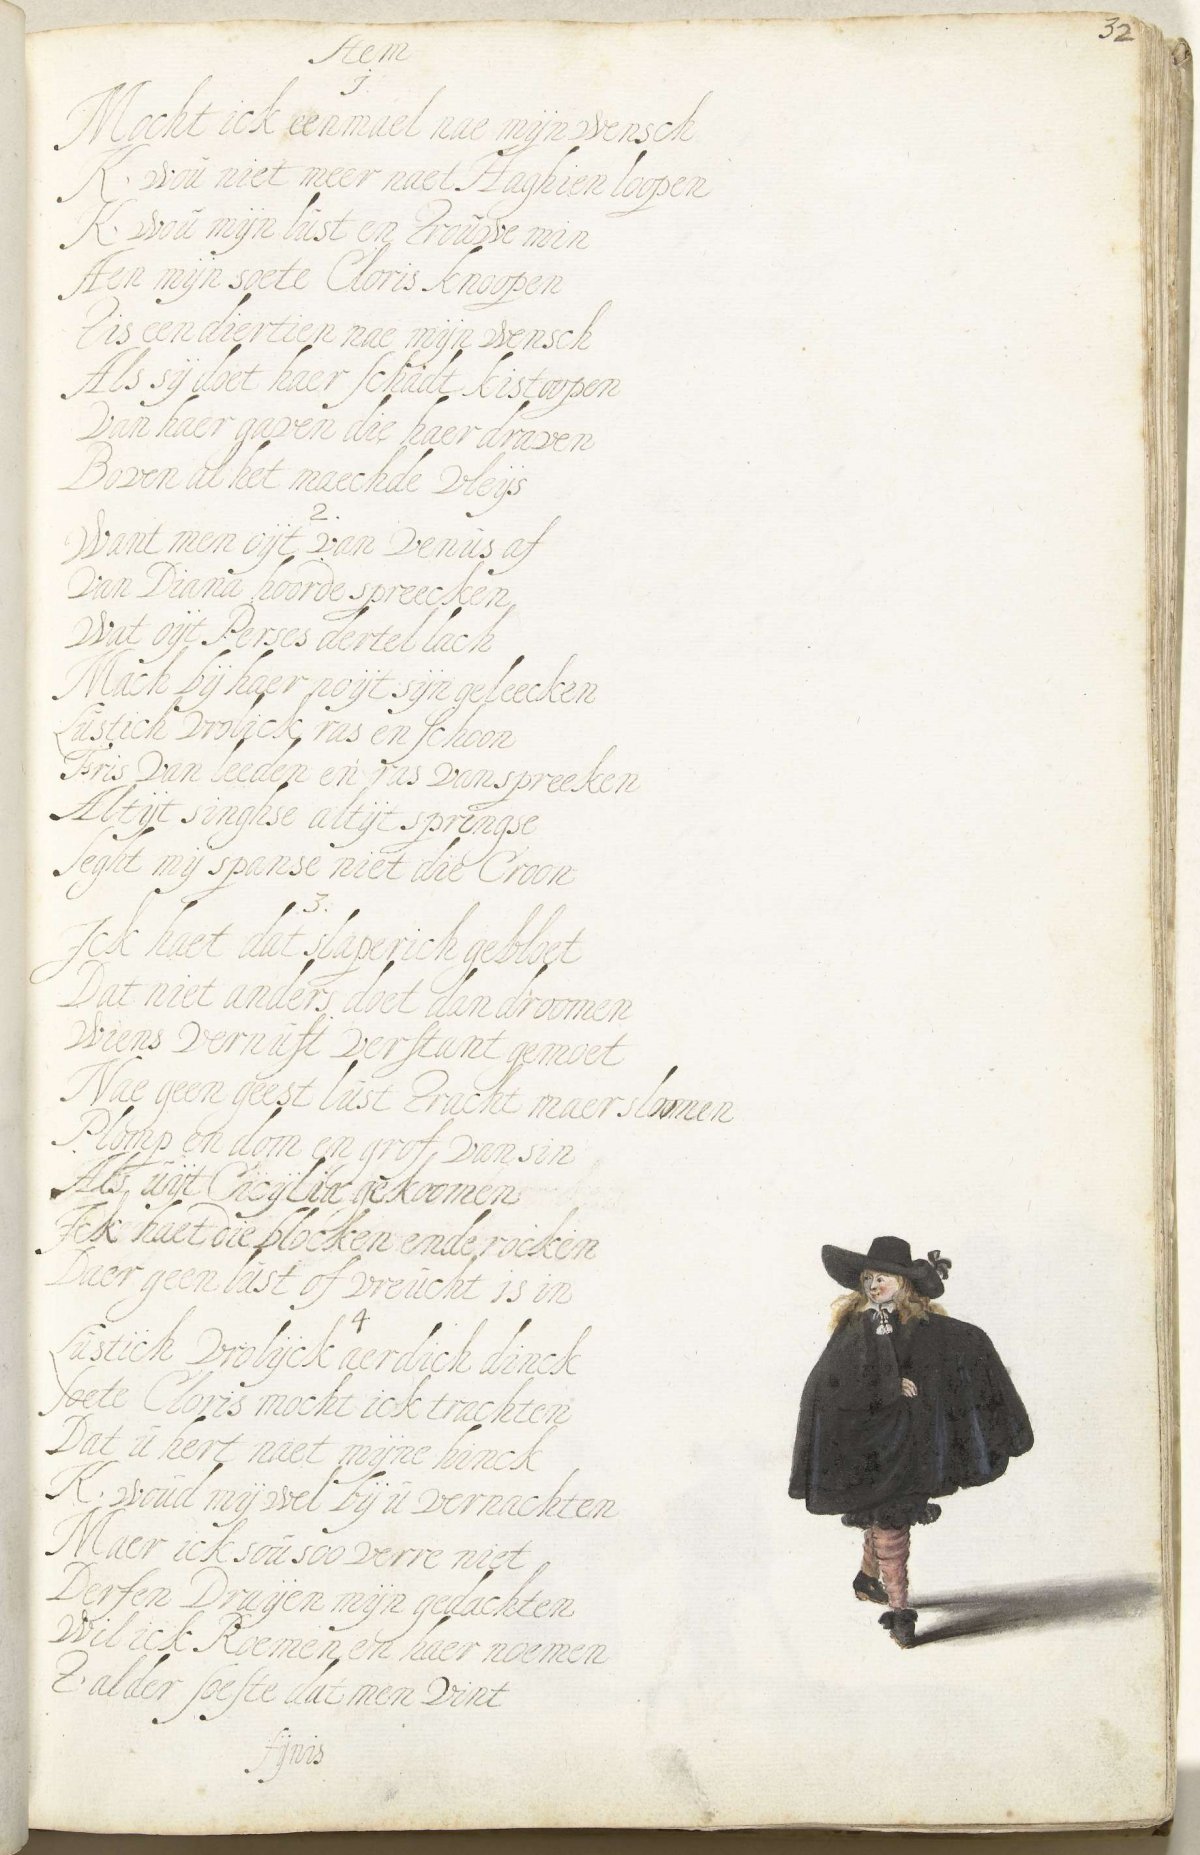 32
Stem
1.
Mocht ick eenmael nae mijn wensch
K. woú niet meer naet Haghien loopen
K. woú mijn lúst en Troúwe min
Aen mijn soete Cloris knoopen
Tis een diertien nae mijn wensch
Als sij doet haer schadt kist oopen
Van haer gaven die haer draven
Boven al het maechde vleijs
2.
Want men oijt van Venús af
Van Diana hoorde spreecken
Wat oijt Perses dertel lach
Mach bij haer noijt sijn geleecken
Lústich vrolick ras en schoon
Fris van leeden en ras van spreeken
Altijt singhse altijt springse
Seght mij spanse niet die Croon
3.
Ick haet dat slaperich gebloet
Dat niet anders doet dan droomen
Wiens vernúft verstant gemoet
Nae geen geest lúst Tracht maer sloomen
Plomp en dom en grof van sin
Als úijt Cicijlia gekoomen
Ick haet die blocken ende rocken
Daer geen lúst of vreúcht is in
4
Lústich vrolijck aerdich dinck
Soete Cloris mocht ick trachten
Dat ú hert niet mijne hinck
K. woúd mij wel bij ú vernachten
Maer ick soú soo verre niet
Derfen Draijen mijn gedachten
Wil ick Roemen en haer noemen
T. alder soeste dat men vint
fijnis